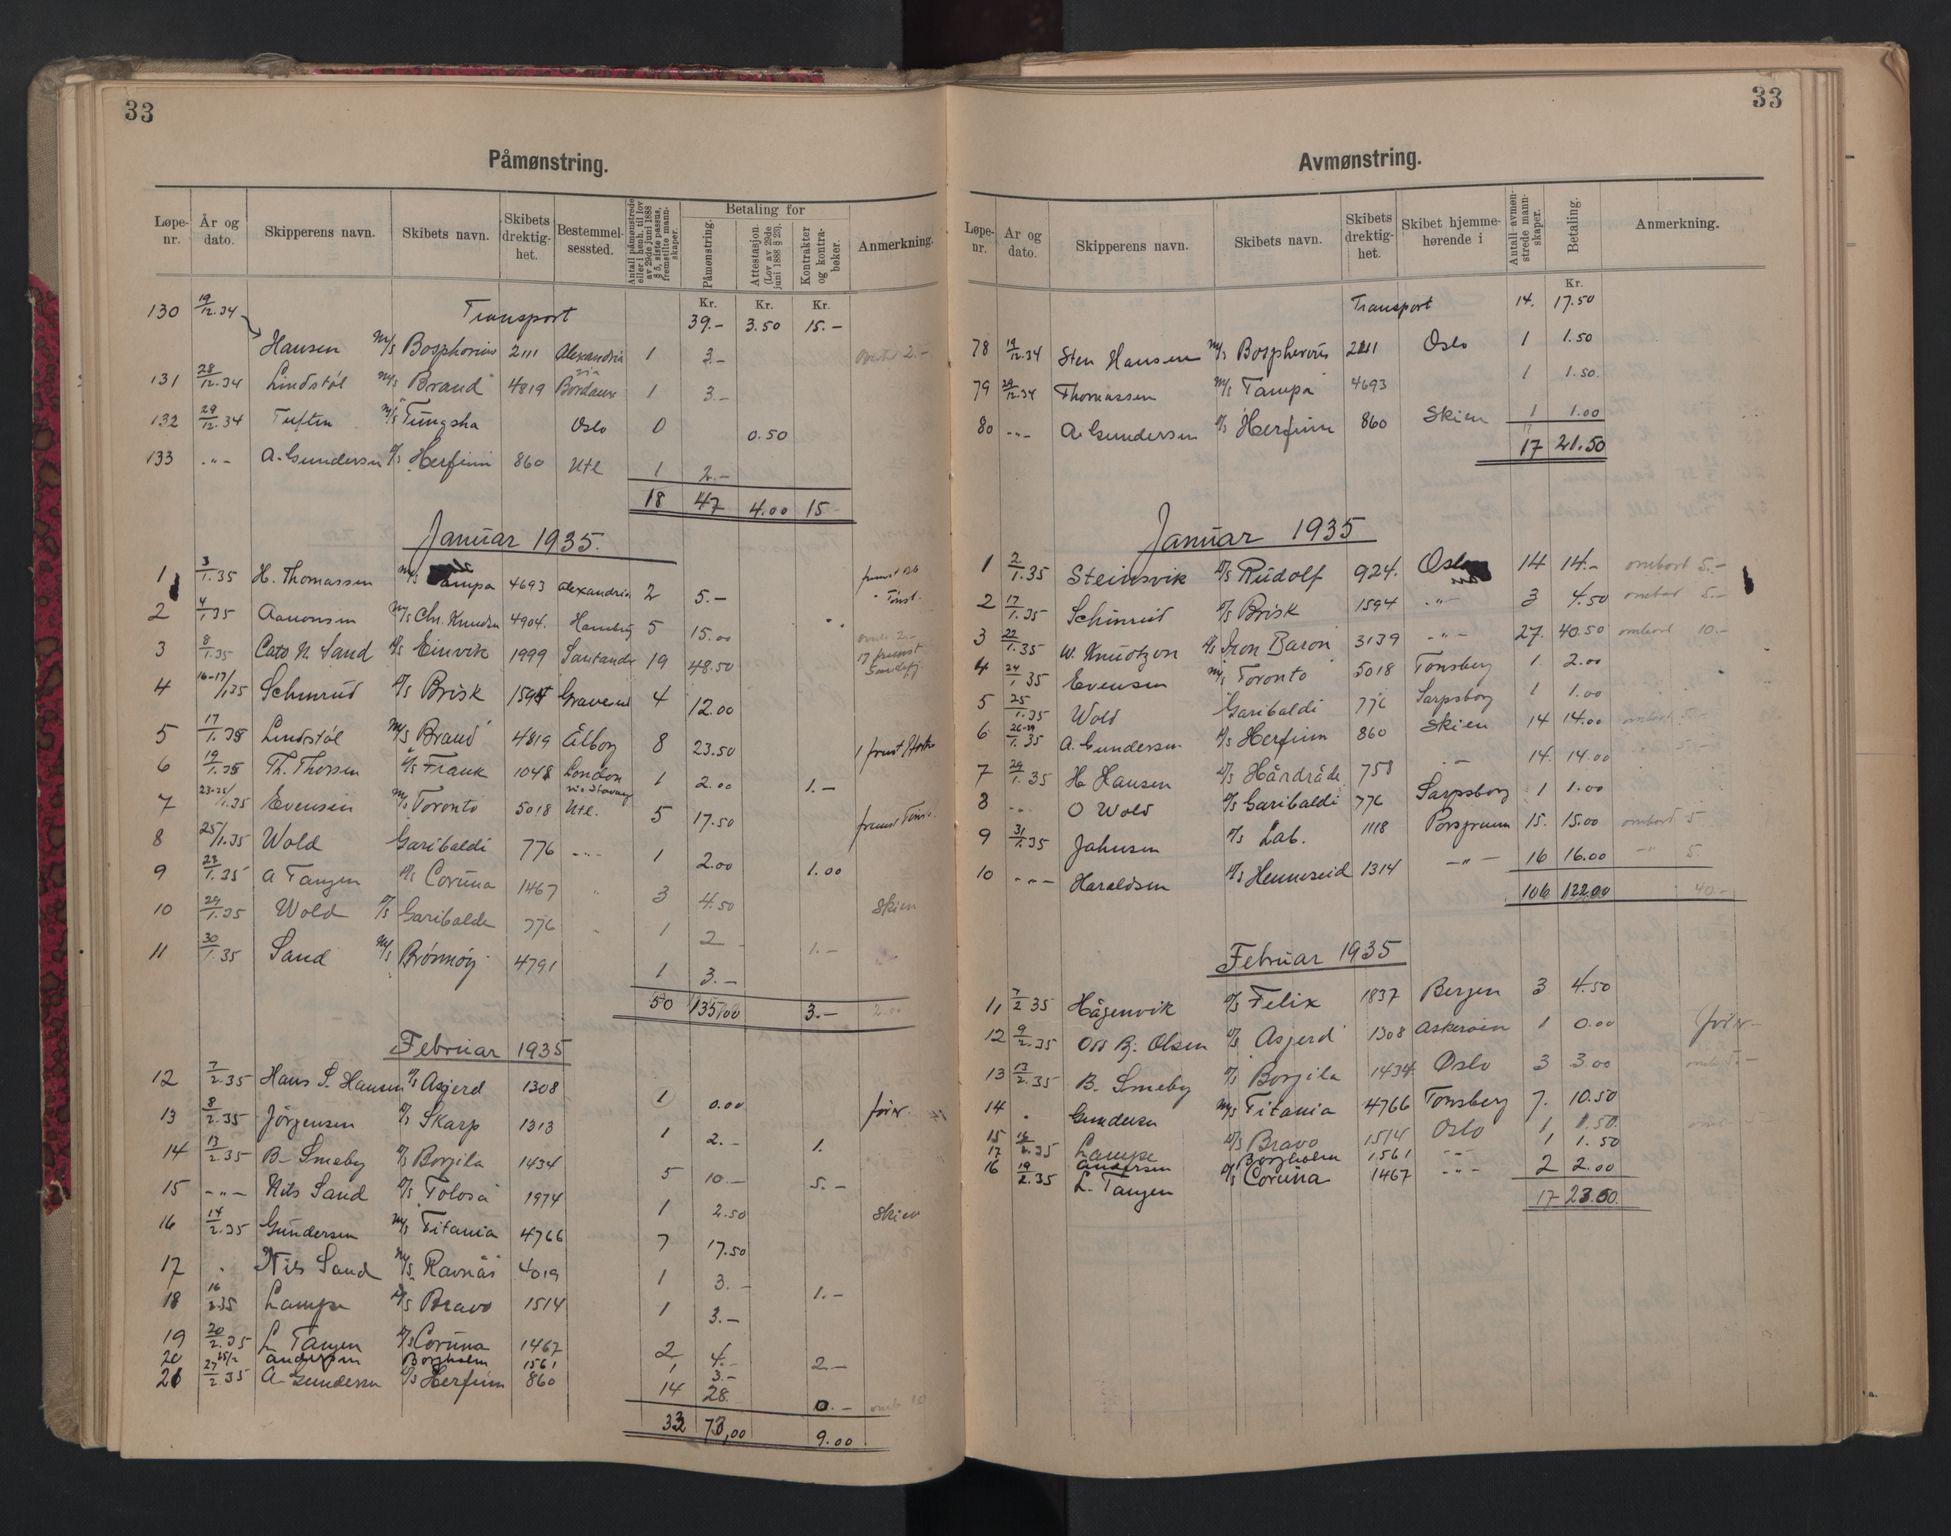 33
Påmønstring.
Løpe-nr. År og dato. Skipperens navn. Skibets navn. Skibets drektig-het. Bestemmel-sessted. Antall påmønstrede eller i henh. til lov av 29de juni 1888 § 5, siste passus, fremstilte mann-skaper. Betaling for Påmønstring. Attestasjon. (Lov av 29de juni 1888 § 23). Kontrakter og kontra-bøker. Anmerkning.
Kr. Kr. Kr.
130 19/12.34 Transport 39.- 3.50 15.-
Hansen M/S Bosphorus 2111 Alexandria 1 3.-
131 28/12.34 Lindstøl M/S Brand 4819 Bordaux 1 3.-
132 29/12.34 Tuften M/S Tungsha Oslo 0 0.50
133 -"- A. Gundersen D/S Herfinn 860 Utl 1 2.-
18 47 4.00 15
Januar 1935.
1 3/1.35 H. Thomassen M/S Tampa 4693 Alexandria 2 5.-
2 4/1.35 Aanonsen M/S Chr. Knudsen 4904. Hamburg 5 15.00
3 8/1.35 Cato N. Sand D/S Einvik 1999 Santander 19 48.50
4 16-17/1.35 Schinrud D/S Brisk 1594 Gravesend 4 12.00
5 17/1.35 Lindstøl M/S Brand 4819 Ålborg 8 23.50
6 19/1.35 Th. Thorsen D/S Frank 1048 London via Stavang 1 2.00 1.-
7 23-25/1.35 Evensen M/S Toronto 5018 Utl. 5 17.50
8 25/1.35 Wold Garibaldi 776 -"- 1 2.00 1.00
9 23/1.35 A Tangen D/S Coruna 1467 " 3 4.50
10 29/1.35 Wold D/S Garibaldi 776 " 1 2 1.- Skien
11 30/1.35 Sand M/S Brønnøy 4791 1 3.-
50 135,00 3.- 2.00
Februar 1935
12 7/2.35 Hans S. Hansen D/S Asgerd 1308 1 0.00 fører.
13 8/2.35 Jörgensen D/S Skarp 1313 1 2.- 1.
14 13/2.35 B. Smeby D/S Borgila 1434 5 10.- 5.-
15 -"- Nils Sand D/S Tolosa 1974 1 2.50 Skien
16 14/2.35 Gundersen M/S Titania 4766 7 17.50
17 " Nils Sand M/S Ravnås 4019 1 3.- 1.-
18 16/2.35 Lampe D/S Bravo 1514 1 3.-
19 20/2.35 L Tangen D/S Coruna 1467 2 4.- 2.-
20 25/2 Andersen Borgholm 1561 1 3.-
21 27/2.35 A. Gundersen D/S Herfinn 860 14 28 0.-
33 73,00 9.00
33
Avmønstring.
Løpe-nr. År og dato. Skipperens navn. Skibets navn. Skibets drektig-het. Skibet hjemme-hørende i Antall avmøn-strede mann-skaper. Betaling. Anmerkning.
Kr.
Transport 14. 17.50
78 19/12.34 Sten Hansen M/S Bosphorus 2111 Oslo 1 1.50
79 29/12.34 Thomassen M/S Tampa 4693 1 1.50.
80 -"- A. Gundersen D/S Herfinn 860 Skien 1 1.00
17 21.50
Januar 1935
1 2/1.35 Steinsvik D/S Rudolf 924. Oslo 14 14.- ombord 5.-
2 17/1.35 Schinrud D/S Brisk 1594 -"- 3 4.50 ombord 5.-
3 22/1.35 W. Knudtzon D/S Iron Baron 3139 -"- 27. 40.50 ombord 10.-
4 24/1 35 Evensen M/S Toronto 5018 Tönsberg 1. 2.00
5 25/1.35 Wold Garibaldi 776 Sarpsborg 1 1.00
6 26-29/1.35 A. Gundersen D/S Herfinn 860 Skien 14 14.00 ombord 5.-
7 29/1.35 H Hansen D/S Hårdråde 758 -"- 14. 14.00 5.-
8 -"- O Wold D/S Garibaldi 776 Sarpsborg 1 1.00
9 31/1.35 Johnsen D/S Lab. 1118 Porsgrunn 15. 15.00 ombord 5
10 -"- Haraldsen D/S Henneseid 1314 -"- 16 16.00 -"- 5.
106 122.00 40.-
Februar 1935
11 7/2 35 Hågenvik D/S Felix 1837 Bergen 3 4.50
12 9/2.35 Olsen D/S Asgerd 1308 Askerøien 1 0.00 fører
13 13/2.35 B. Smeby D/S Borgila 1434 Oslo 3 3.00
14 " Gundersen M/S Titania 4766 Tönsberg 7. 10.50
15 16/2.35 Lampe D/S Bravo 1514 Oslo 1 1.50
17 Andersen Borgholm 1561 -"- 1 1.50
16 19/2.35 L. Tangen D/S Coruna 1467 -"- 2 2.00
17 23.50